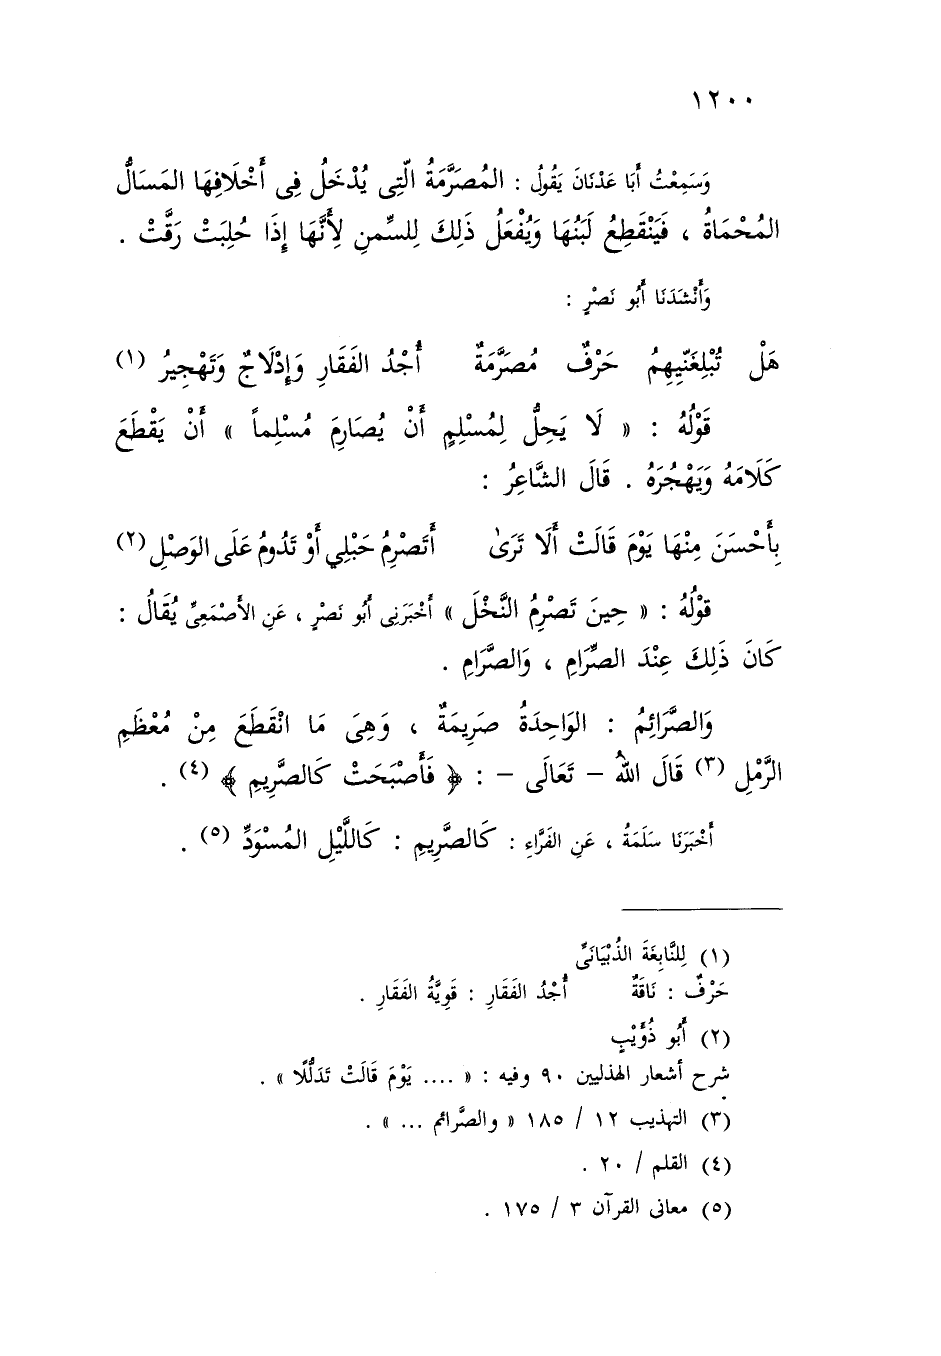 ١٢٠٠
وَسَمِعْتُ أَبَا عَدْنَانَ يَقُولُ : المُصَرَّمَةُ الَّتِى يُدْخَلُ فِى أَخْلَافِهَا المَسَالُّ
المُحْمَاةُ ، فَيَنْقَطِعُ لَبَنُهَا وَيُفْعَلُ ذَلِكَ لِلسِّمنِ لِأَنَّهَا إِذَا حُلِبَتْ رَقَّتْ .
وَأَنْشَدَنَا أَبُو نَصْرٍ :
هَلْ تُبْلِغَنّيِهِمُ حَرْفٌ مُصَرَّمَةٌ أُجْدُ الفَقَارِ وَإِدْلَاجٌ وَتَهْجِيرُ (١)
قَوْلُهُ : « لَا يَحِلُّ لِمُسْلِمٍ أَنْ يُصَارِمَ مُسْلِماً » أَنْ يَقْطَعَ
كَلَامَهُ وَيَهْجُرَهُ . قَالَ الشَّاعِرُ :
بِأَحْسَنَ مِنْهَا يَوْمَ قَالَتْ أَلَا تَرَىٰ أَتَصْرِمُ حَبْلِي أَوْ تَدُومُ عَلَى الوَصْلِ (٢)
قَوْلُهُ : « حِينَ تَصْرِمُ النَّخْلَ » أَخْبَرَنِى أَبُو نَصْرٍ ، عَنِ الأَصْمَعِىِّ يُقَالُ :
كَانَ ذَلِكَ عِنْدَ الصِّرَامِ ، وَالصَّرَامِ .
وَالصَّرَائِمُ : الوَاحِدَةُ صَرِيمَةٌ ، وَهِىَ مَا انْقَطَعَ مِنْ مُعْظَمِ
الرَّمْلِ (٣) قَالَ اللهُ - تَعَالَى - : ﴿ فَأَصْبَحَتْ كَالصَّرِيمِ ﴾ (٤) .
أَخْبَرَنَا سَلَمَةُ ، عَنِ الفَرَّاءِ : كَالصَّرِيمِ : كَاللَّيْلِ المُسْوَدِّ (٥) .
(١) لِلنَّابِغَةَ الذُبْيَانَىِّ
حَرْفٌ : نَاقَةٌ أُجْدُ الفَقَارِ : قَوِيَّةُ الفَقَارِ .
(٢) أَبُو ذُؤَيْبٍ
شرح أشعار الهذليين ٩٠ وفيه : « .... يَوْمَ قَالَتْ تَدَلُّلًا » .
(٣) التهذيب ١٢ / ١٨٥ « والصَّرائم ... » .
(٤) القلم / ٢٠ .
(٥) معانى القرآن ٣ / ١٧٥ .